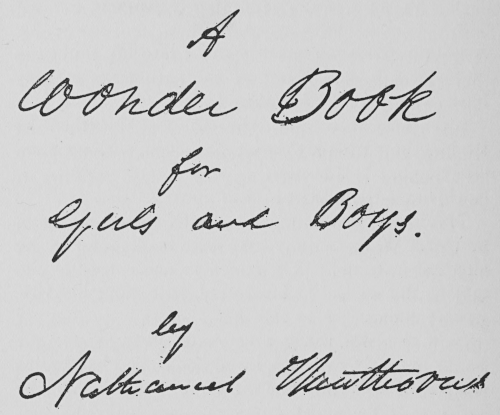 A
Wonder Book
for
Girls and Boys.
by
Nathaniel Hawthorne